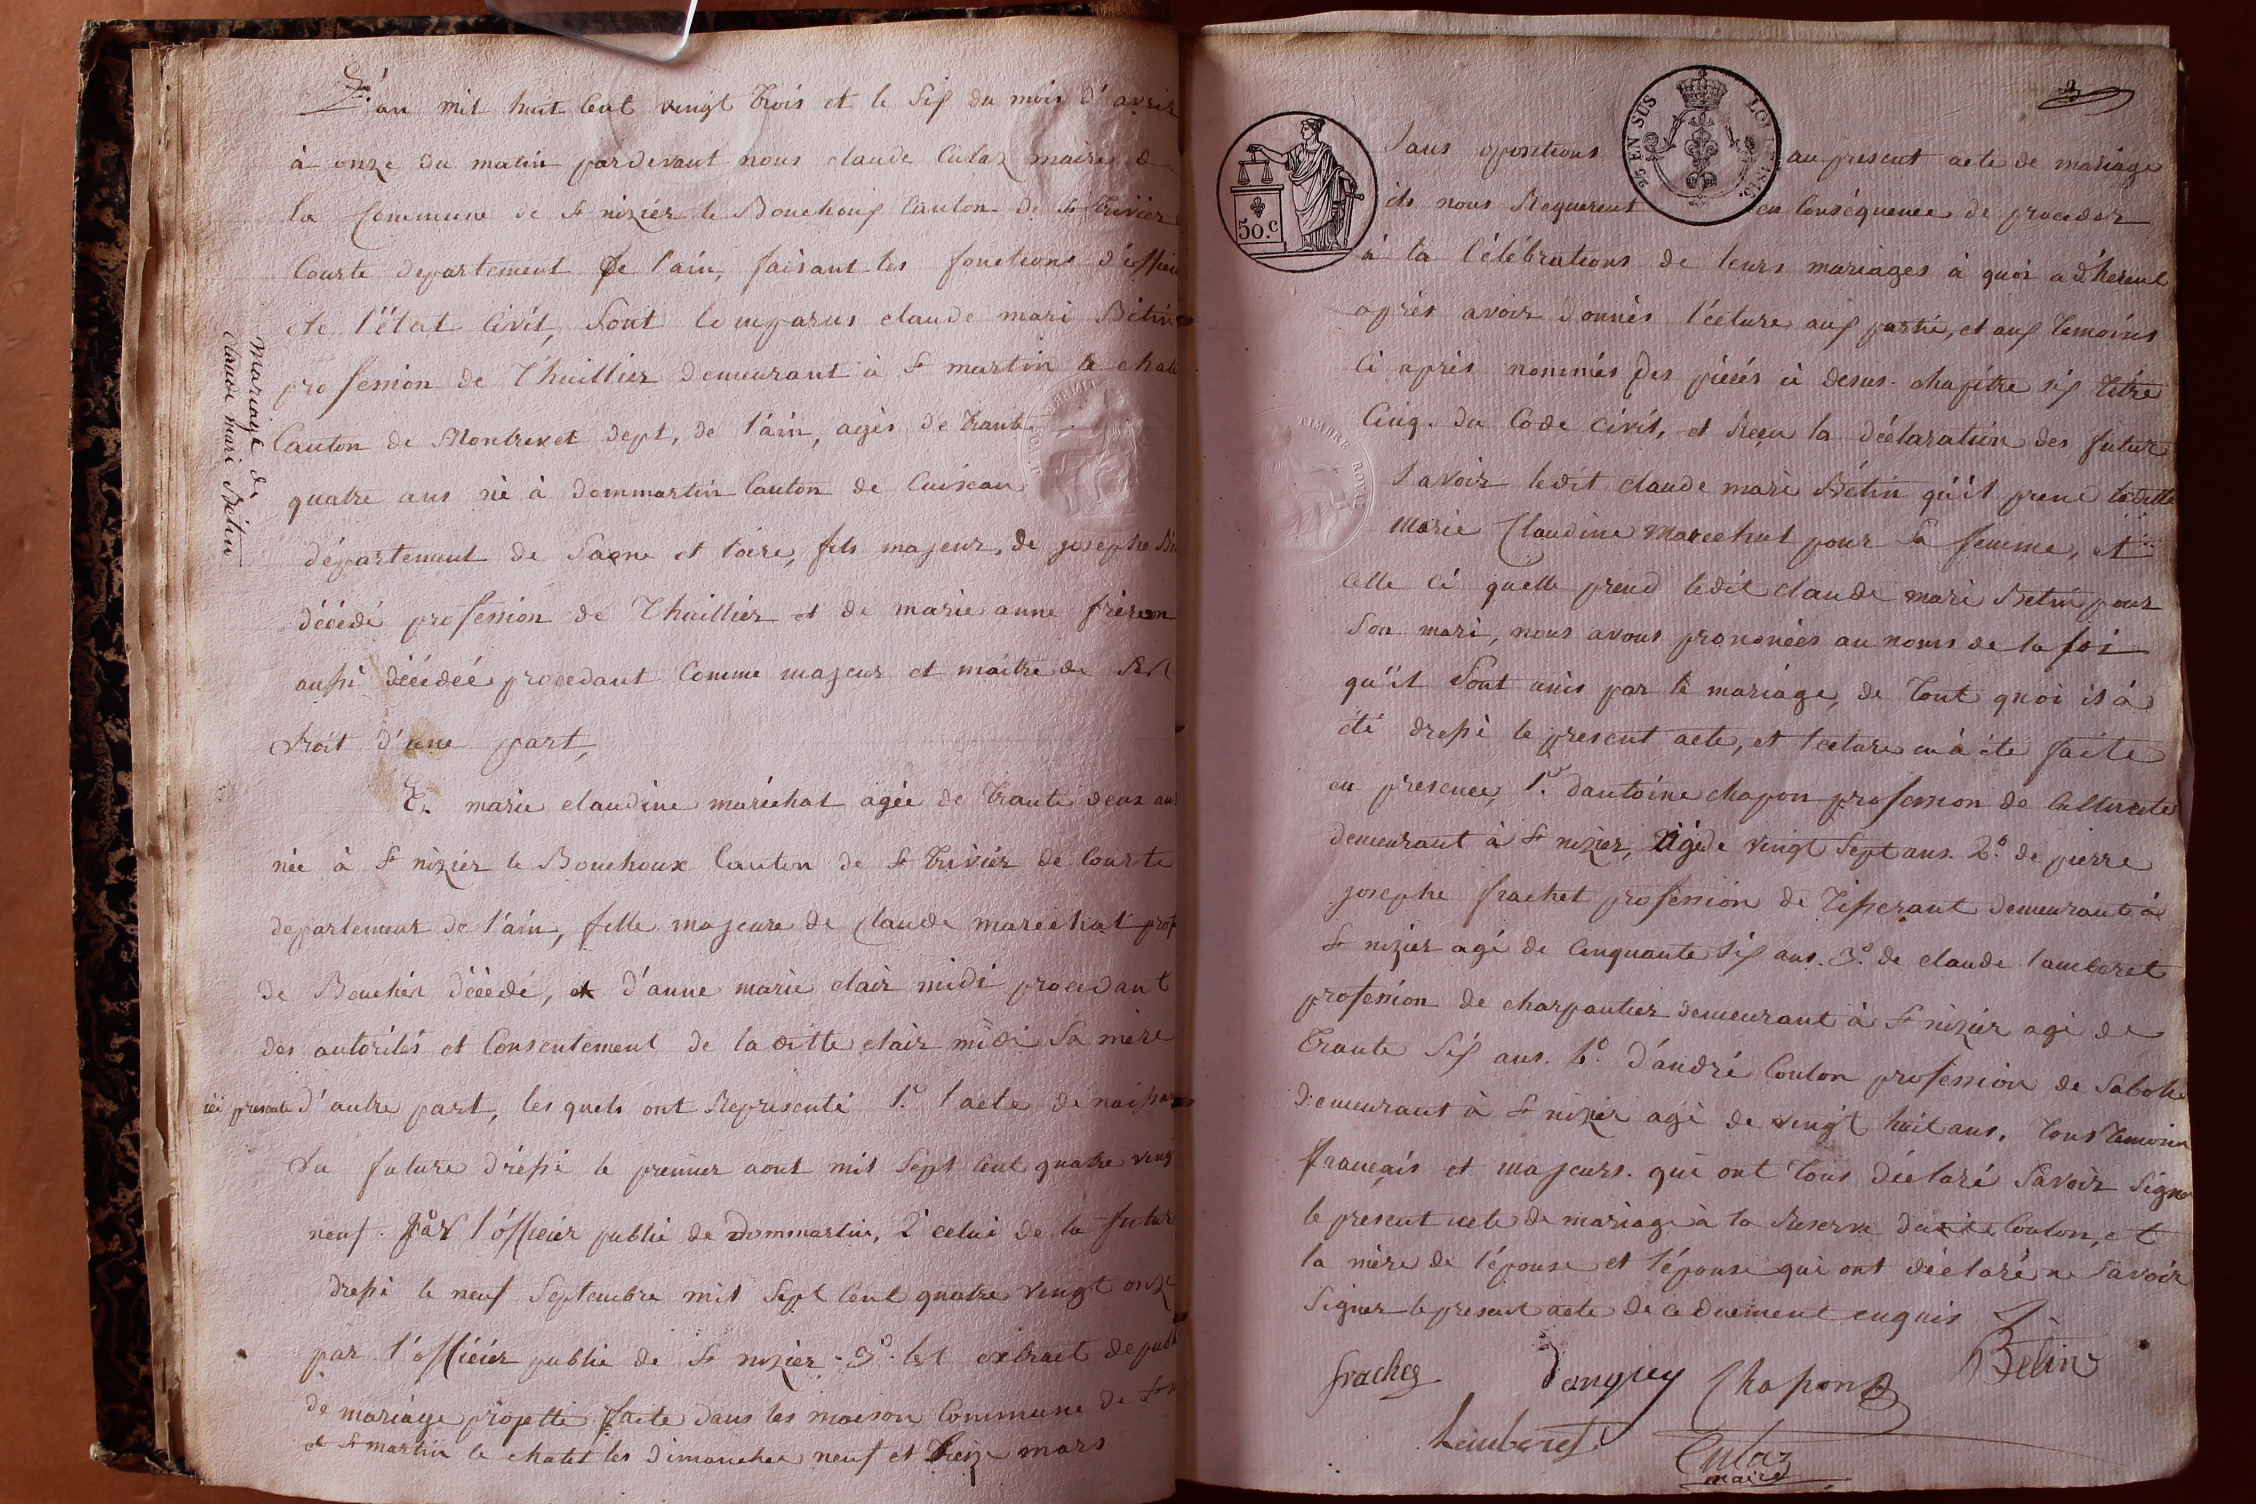 L'an mil huit Cent vingt trois et le Six du mois d'avril
à onze du matin pardevant nous claude Culaz maire d
la Commune de St nizièr le Bouchoux Canton de St Trivier
Courte departement de l'ain, faisant les fonctions d'officie
de l'état Civil, Sont Comparus claude mari Bétin
profession de Thuillièr demeurant à St martin le chate
Canton de Montrevet dept, de l'ain, agès de trante
quatre ans nè à dommartin Canton de Cuiseau
département de Saone et loire, fils majeur, de josephe Bé
décédé profession de Thuillièr et de marie anne frèron
aussi décédeé procedant Comme majeur et maitre de Ses
droit d'une part,
Et marie claudine maréchal agée de trante deux ans
née à St nizièr le Bouchoux Canton de St trivièr de Courte
departement de l'ain, fille majeure de claude marechal prof
de Bouchér décédé, et d'anne marie clair midi procedant
des autorités et Consentement de la ditte clair midi Sa mère
ici presente d'autre part, les quels ont Representé 1.° l'acte de naissa
du future dréssé le premier aout mil Sept Cent quatre vingt
neuf par l'officier public de dommartin, 2° celui de la futur
dressé le neuf Septembre mil Sept Cent quatre vingt onze
par l'officiér public de St nizier. 3° les extrait de publ
de mariage projetté faite dans les maison Commune de St
et St martin le chatel les dimanches neuf et treize mars
Mariage de
claude mari Bétin
25 EN SUS LOI 1816.
50.c
TIMBRE ROYAL
Sans oppositions au present acte de mariage
ils nous Requerent en Conséquence de proceder
à la Célébrations de leurs mariages à quoi adherent
après avoir donnés lécture aux partie, et aux temoins
Ci après nommés des pièces ci desus. chapitre six titre
Cinq. du Code Civil, et Reçu la déclaration des futur
Savoir ledit claude mari Bétin qu'il prend ladite
Marie Claudine Marechal pour Sa femme, et
celle ci quelle prend ledit claude mari Betin pour
Son mari, nous avons prononcés au noms de la loi
qu'il Sont unis par le mariage, de tout quoi il à
été dressé le present acte, et lecture en à été faite
en presence, 1.° dantoine chapon profession de Cultivate
demeurant à St nizier, agé de vingt Sept ans. 2.° de pierre
josephe frachet profession de tisserant demeurant à
St nizier agé de Cinquante Six ans. 3.° de claude lamberet
profession de charpantier demeurant à St nizièr agé de
trante Six ans. 4.° d'andré Coulon profession de Sabotie
demeurant à St nizier agé de vingt huit ans. tous temoin
français et majeurs. qui ont tous déclaré Savoir Signer
le present acte de mariage à la Reserve dudit Coulon, et
la mère de l'épouse et l'épouse qui ont déclaré ne Savoir
Signer le present acte de ce duement enquis
Bétin
frachet danguy Chapon
Lamberet
Culaz
maire